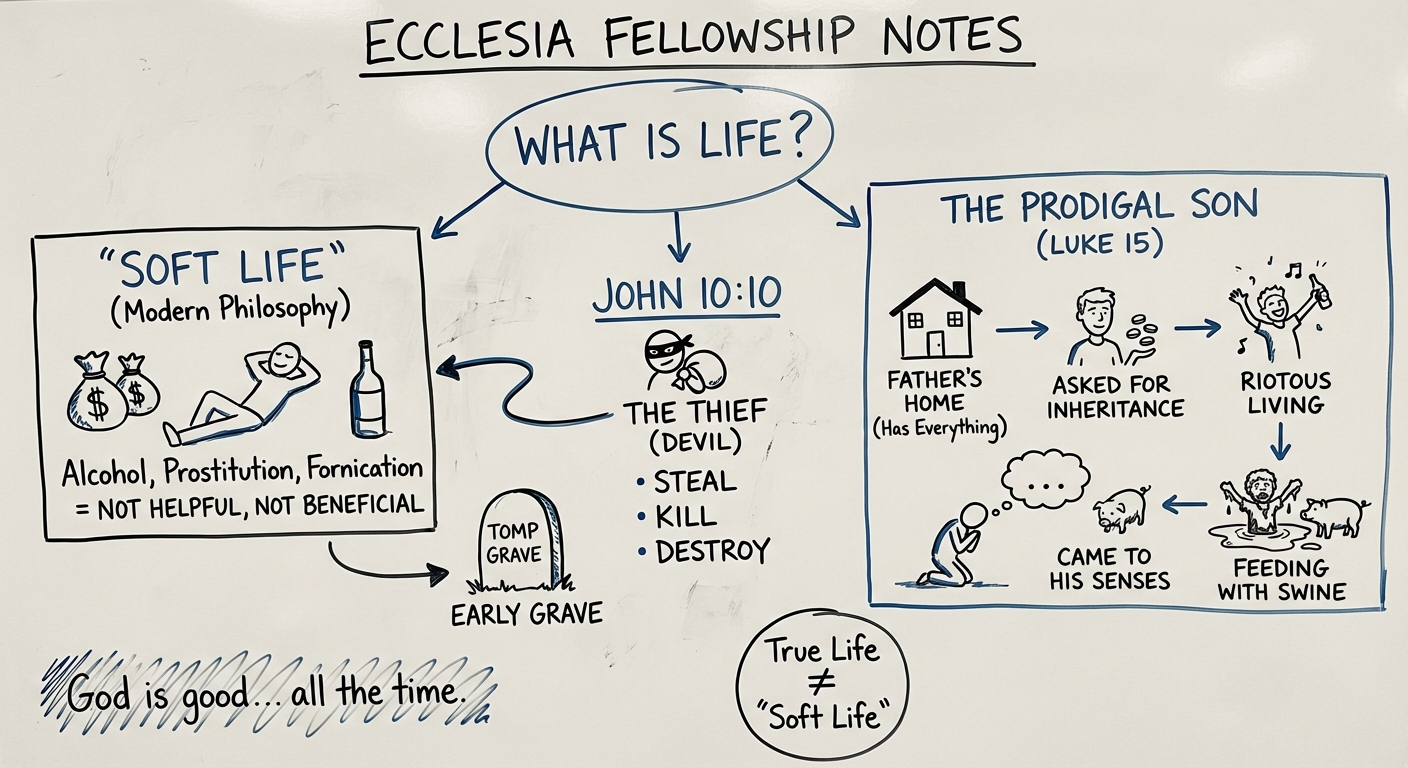 ECCLESIA FELLOWSHIP NOTES
WHAT IS LIFE?
"SOFT LIFE"
(Modern Philosophy)
$ $
Alcohol, Prostitution, Fornication
= NOT HELPFUL, NOT BENEFICIAL
TOMP
GRAVE
EARLY GRAVE
JOHN 10:10
THE THIEF
(DEVIL)
• STEAL
• KILL
• DESTROY
THE PRODIGAL SON
(LUKE 15)
FATHER'S
HOME
(Has Everything)
ASKED FOR
INHERITANCE
RIOTOUS
LIVING
FEEDING
WITH SWINE
...
CAME TO
HIS SENSES
God is good... all the time.
True Life
≠
"Soft Life"